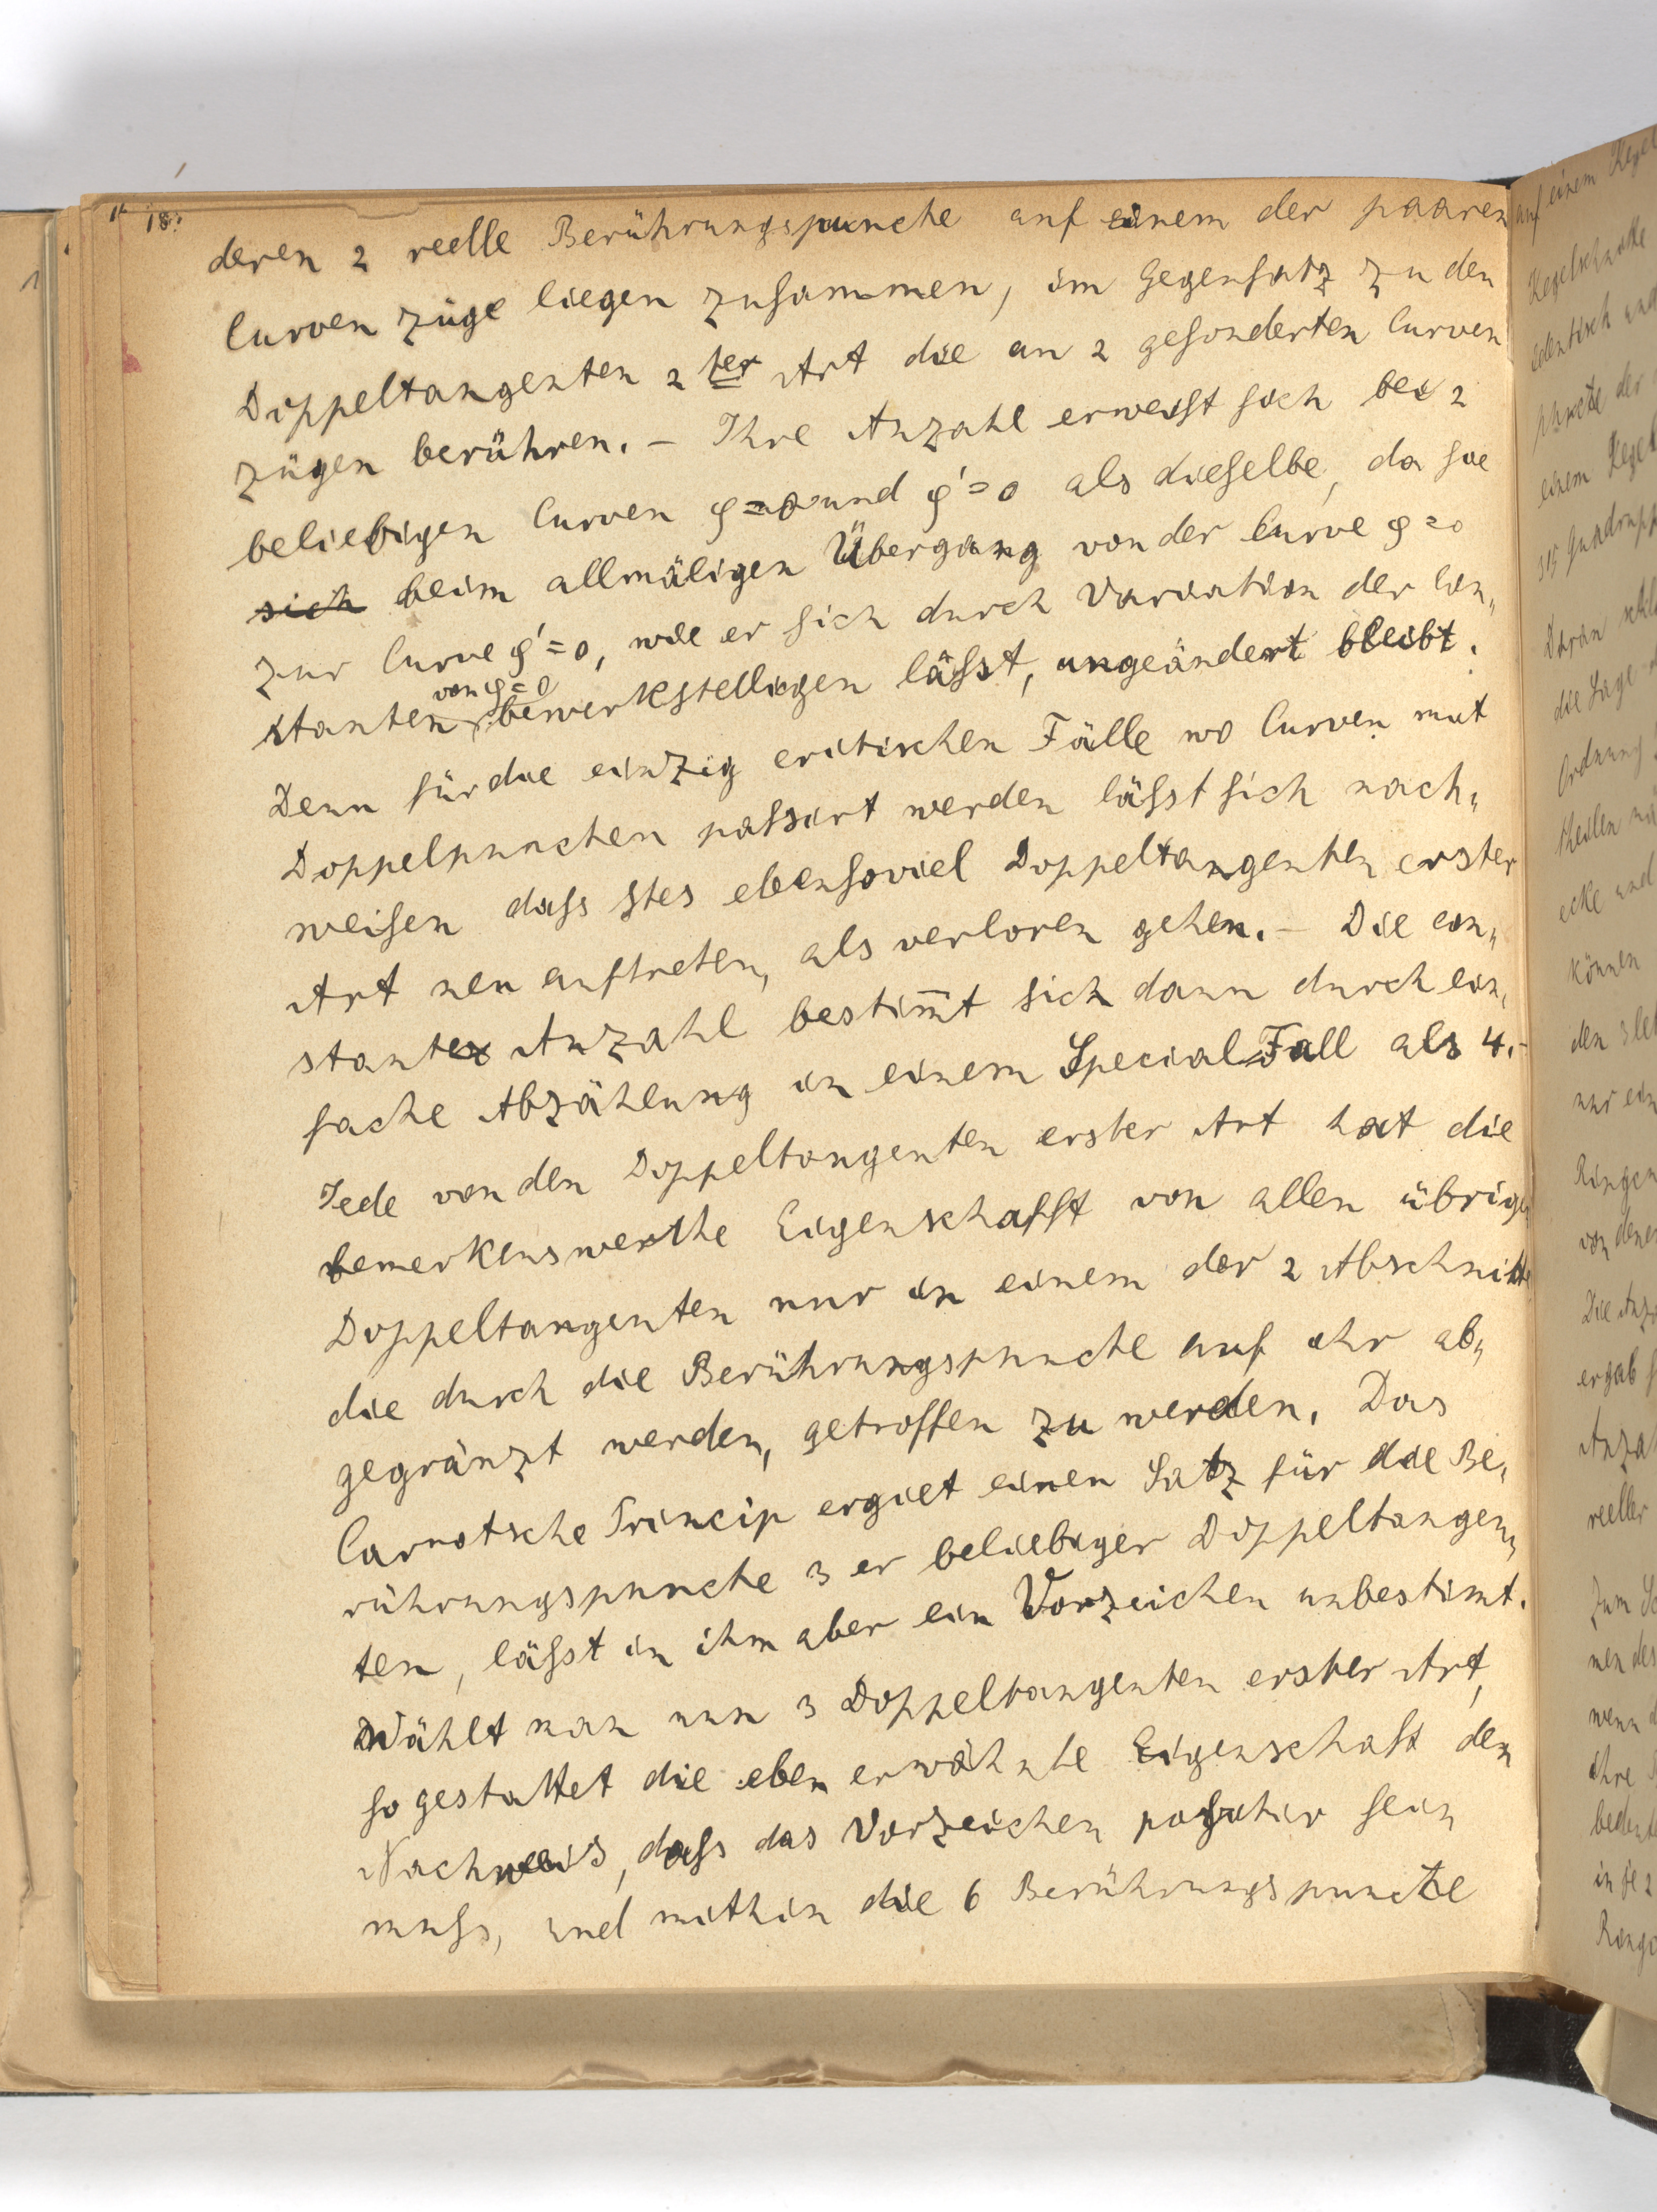 18.
deren 2 reelle Berührungspuncte auf einem der paaren
Curven züge liegen zusammen, im Gegensatz zu den
Doppeltangenten 2ter Art die an 2 gesonderten Curven
zügen berühren. – Ihre Anzahl erweist sich bei 2
beliebigen Curven φ=0 und φ'=0 als dieselbe, da sie
sich beim allmäligen Übergang von der Curve φ=0
zur Curve φ'=0, wie er sich durch Variation der Con„
von φ=0
stanten bewerkstelligen lässt, ungeändert bleibt.
Denn für die einzig critischen Fälle wo Curven mit
Doppelpuncten passirt werden lässt sich nach„
weisen dass stes ebensoviel Doppeltangenten erster
Art neu auftreten, als verloren gehen. – Die con„
stante Anzahl bestim̄t sich dann durch ein„
fache Abzählung in einem Special Fall als 4. –
Jede von den Doppeltangenten erster Art hat die
bemerkenswerthe Eigenschafft von allen übrigen
Doppeltangenten nur in einem der 2 Abschnitte
die durch die Berührungspuncte auf ihr ab„
gegränzt werden, getroffen zu werden. Das
Carnotsche Princip ergiet einen Satz für die Be„
rührungspuncte 3 er beliebiger Doppeltangen„
ten, lässt in ihm aber ein Vorzeichen unbestimt.
Wählt man nun 3 Doppeltangenten erster Art,
so gestattet die eben erwähnte Eigenschaft den
Nachweis, dass das Vorzeichen positiv sein
muss, und mithin die 6 Berührungspuncte
auf einem Kegel
Kegelschnitte
identisch und
puncte der
einem Kegel
315 Quadrupp
Daran
die Lage
Ordnung
theilen
ecke und
können
den 3
nur ein
Ringen
von denen
Die Anz
ergab
Anzah
reeller
Zum
nen des
wenn
ihre
bedeut
in je 2